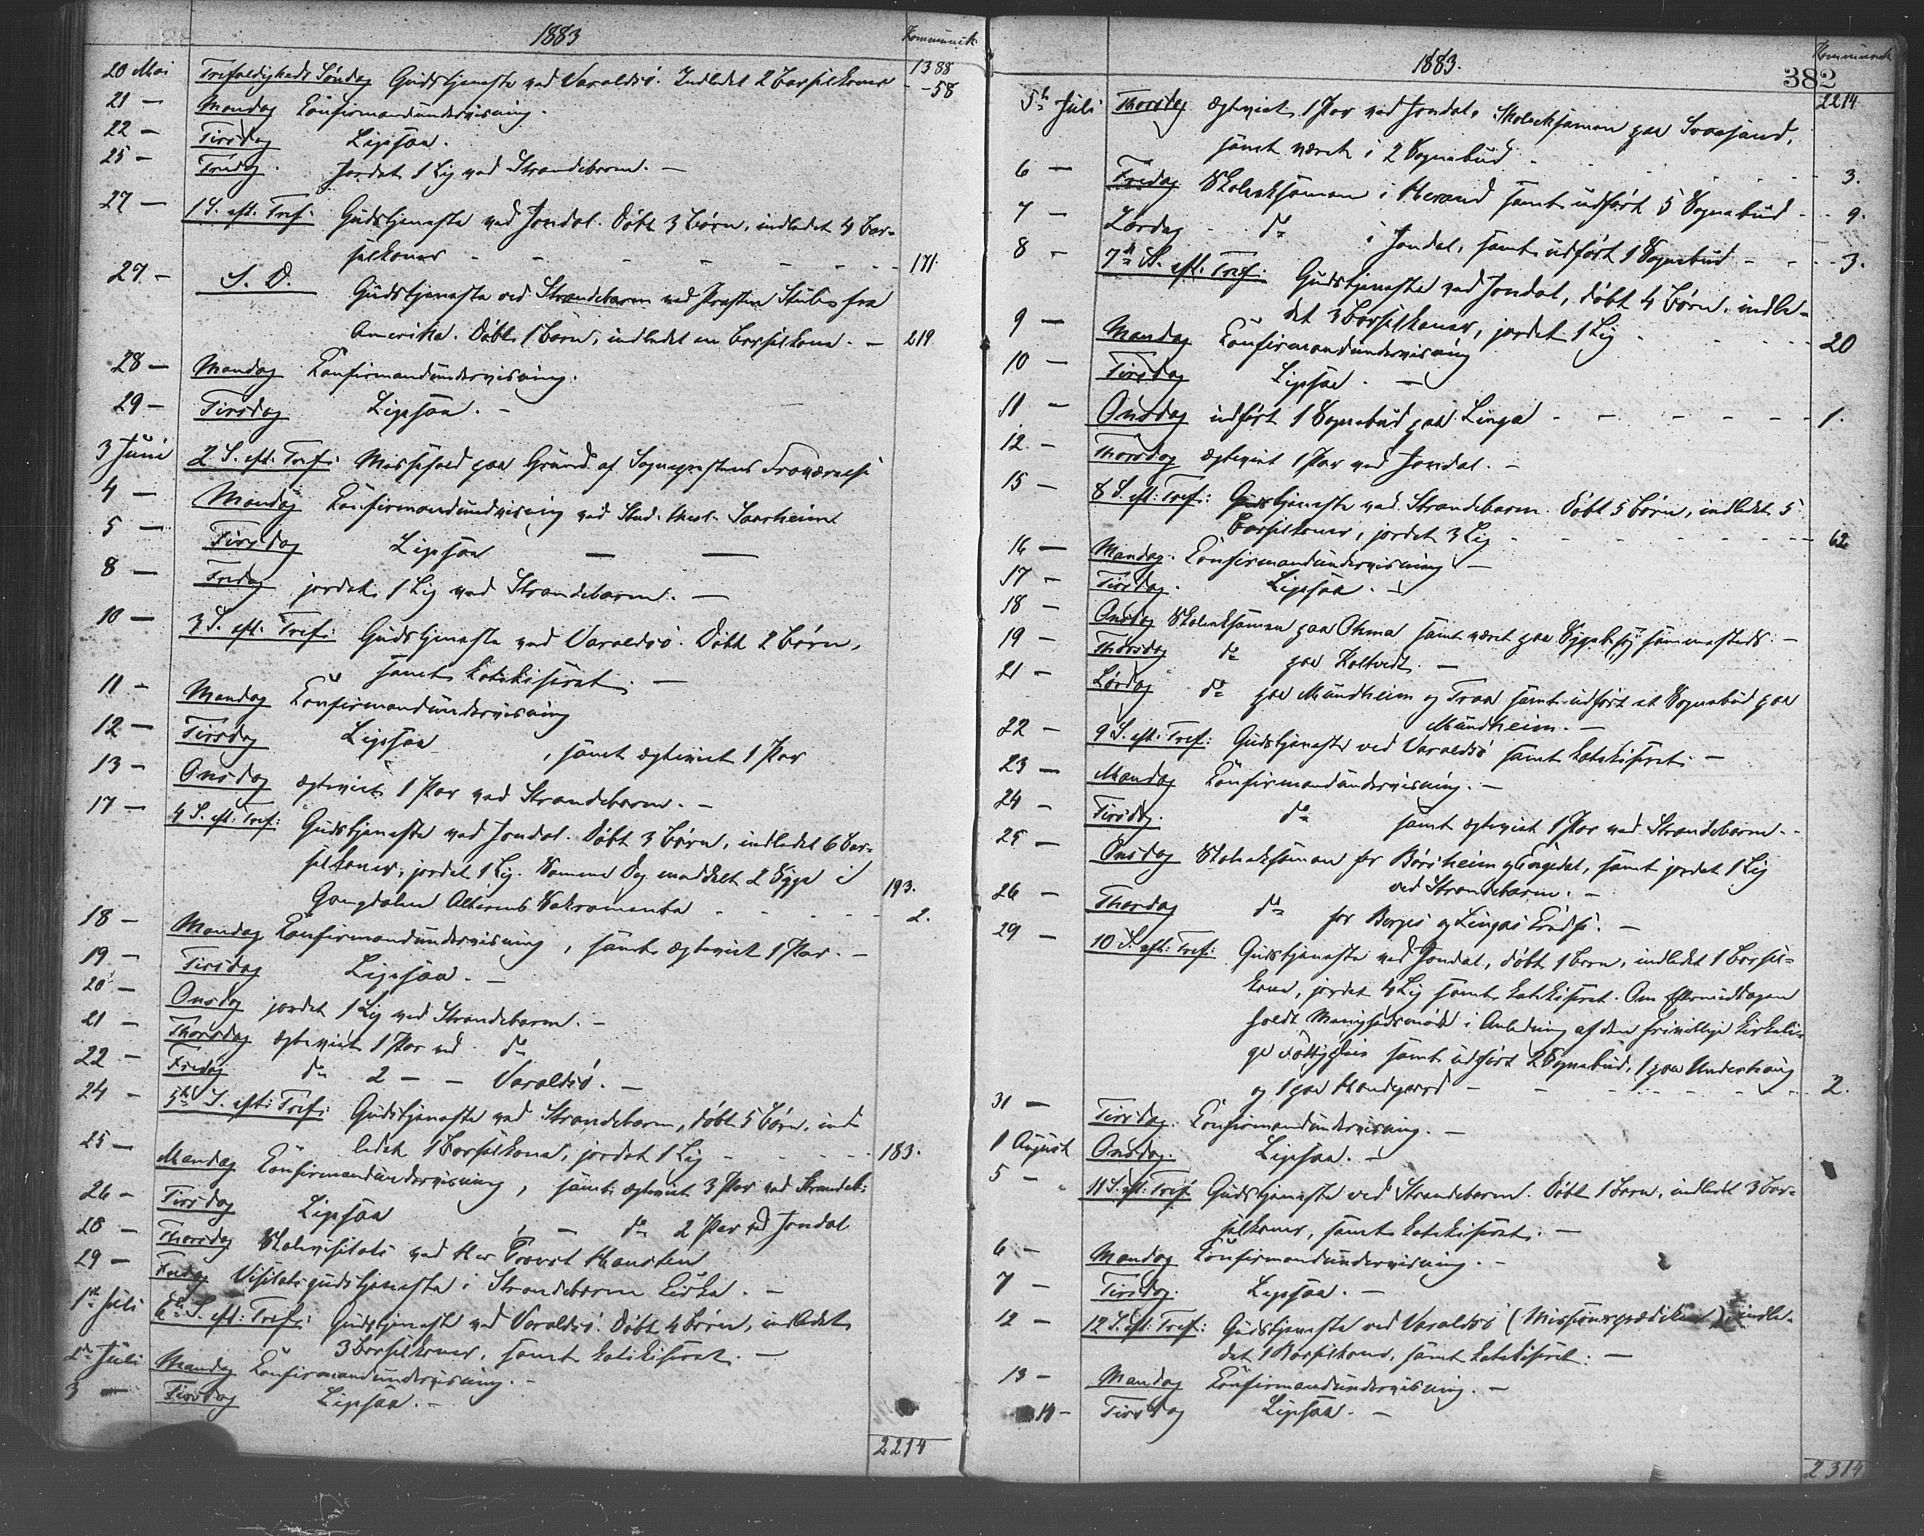 1883
Kommunik.
1388
20 Mai Trefoldigheds Søndag Gudstjeneste ved Varaldsø. Indledet 2 Barselkoner - - 58
21 — Mandag Konfirmandundervisning.
22 — Tirsdag Ligesaa.
25 — Fredag. Jordet 1 Lig ved Strandebarm. —
27 — 1 S. eft. Tref: Gudstjeneste ved Jondal. Døbt 3 Børn, indledet 4 Bar-
selkoner - - - - - - - 171.
27 — S. D. Gudstjeneste ved Strandebarm ved Præsten Stub fra
Amerika. Døbt 1 Barn, indledet en Barselkone. — 219
28 — Mandag Konfirmandundervisning.
29 — Tirsdag Ligesaa. —
3 Juni 2 S. eft: Tref: Messefald paa Grund af Sognepræstens Fraværelse
4 — Mandag Konfirmandundvisning ved Stud. theol. Saarheim
5 — Tirsdag Ligesaa — —
8 — Fredag jordet 1 Lig ved Strandebarm. —
10 — 3 S. eft: Tref: Gudstjeneste ved Varaldsø. Døbt 2 Børn,
samt katekiseret. —
11 - Mandag Konfirmandundervisning
12 - Tirsdag Ligesaa , samt ægteviet 1 Par
13 - Onsdag ægteviet 1 Par ved Strandebarm. —
17 — 4 S. eft: Tref: Gudstjeneste ved Jondal. Døbt 3 Børn, indledet 6 Bar-
selkoner, jordet 1 Lig. Samme Dag meddelt 2 Syge i 193.
Alterens Sakramente - - - - 2.
18 — Mandag Konfirmandundervisning, samt ægteviet 1 Par. —
19 — Tirsdag Ligesaa. —
20 — Onsdag jordet 1 Lig ved Strandebarm. —
21 — Thorsdag ægteviet 1 Par ved do
22 — Fredag do 2 — — Varaldsø. —
24 - 5te S. eft: Tref: Gudstjeneste ved Strandebarm, døbt 5 Børn, ind
ledet 1 Barselkone, jordet 1 Lig - - - - 183.
25 — Mandag Konfirmandundervisning, samt ægteviet 3 Par ved Strandeb:
26 — Tirsdag Ligesaa , — do 2 Par ved Jondal
28 — Thorsdag Skolevisitats ved Her Provst Hansteen
29 — Fredag Visitatsgudstjeneste i Strandebarm Kirke. —
1ste Juli 6te S. eft: Tref: Gudstjenest ved Varaldsø. Døbt 4 Børn, indledet
3 Barselkoner, samt katekiseret. —
2den Juli Mandag Konfirmandundervisning. —
3 — Tirsdag Ligesaa. —
2214
1883.
Kommunik
382
2214
5te Juli Thorsdag ægteviet 1 Par ved Jondal, Skoleeksamen paa Svaasand,
samt været i 2 Sognebud - - - - 3.
6 — Fredag Skoleeksamen i Herand samt udført 5 Sognebud - - 9.
7 — Lørdag do i Jondal, samt udført 1 Sognebud - - - 3.
8 - 7de S. eft. Tref: Gudstjeneste ved Jondal, døbt 4 Børn, indle-
det 3 Barselkoner, jordet 1 Lig - - - - 20
9 — Mandag Konfirmandundervisning
10 — Tirsdag Ligesaa. —
11 — Onsdag udført 1 Sognebud paa Linga - - - - 1.
12 — Thorsdag ægteviet 1 Par ved Jondal. —
15 — 8 S. eft: Tref: Gudstjeneste ved Strandebarm. Døbt 5 Børn, indledet 5
Barselkoner, jordet 3 Lig - - - - 62
16 — Mandag. Konfirmandundervisning —
17 — Tirsdag. Ligesaa. —
18 — Onsdag Skoleeksamen paa Oma samt været paa Sygebesøg sammesteds. —
19 — Thorsdag do paa —
21 — Lørdag do paa Mundheim og Traa samt udført et Sognebud paa
Mundheim. —
22 — 9 S. eft: Tref: Gudstjeneste ved Varaldsø samt katekiseret. —
23 — Mandag Konfirmandundervisning. —
24 — Tirsdag. do samt ægteviet 1 Par ved Strandebarm. -
25 — Onsdag Skoleeksamen for Børsheim og Fosse, samt jordet 1 Lig
ved Strandebarm. —
26 — Thorsdag do for Berges og Lingas Kreds. —
29 — 10 S. eft: Tref: Gudstjeneste ved Jondal, døbt 1 Barn, indledet 1 Barsel-
kone, jordet 4 Lig samt katekiseret. Om Eftermiddagen
holdt Menighedsmøde i Anledning af den frivillige kirkeli-
ge samt udført 2 Sognebud, 1 paa Underhaug
og 1 paa - - - - 2.
31 — Tirsdag. Konfirmandundervisning. —
1 August Onsdag. Ligesaa. —
5 — 11 S. eft: Tref: Gudstjeneste ved Strandebarm. Døbt 1 Barn, indledt 3 Bar-
selkoner, samt katekiseret. —
6 — Mandag Konfirmandundervisning. —
7 — Tirsdag. Ligesaa. —
12 — 12 S. eft: Tref: Gudstjeneste ved Varaldsø (Missionsprædiken), indle-
det 1 Barselkone, samt katekiseret. —
13 — Mandag Konfirmandundervisning. —
14 — Tirsdag Ligesaa. —
2314